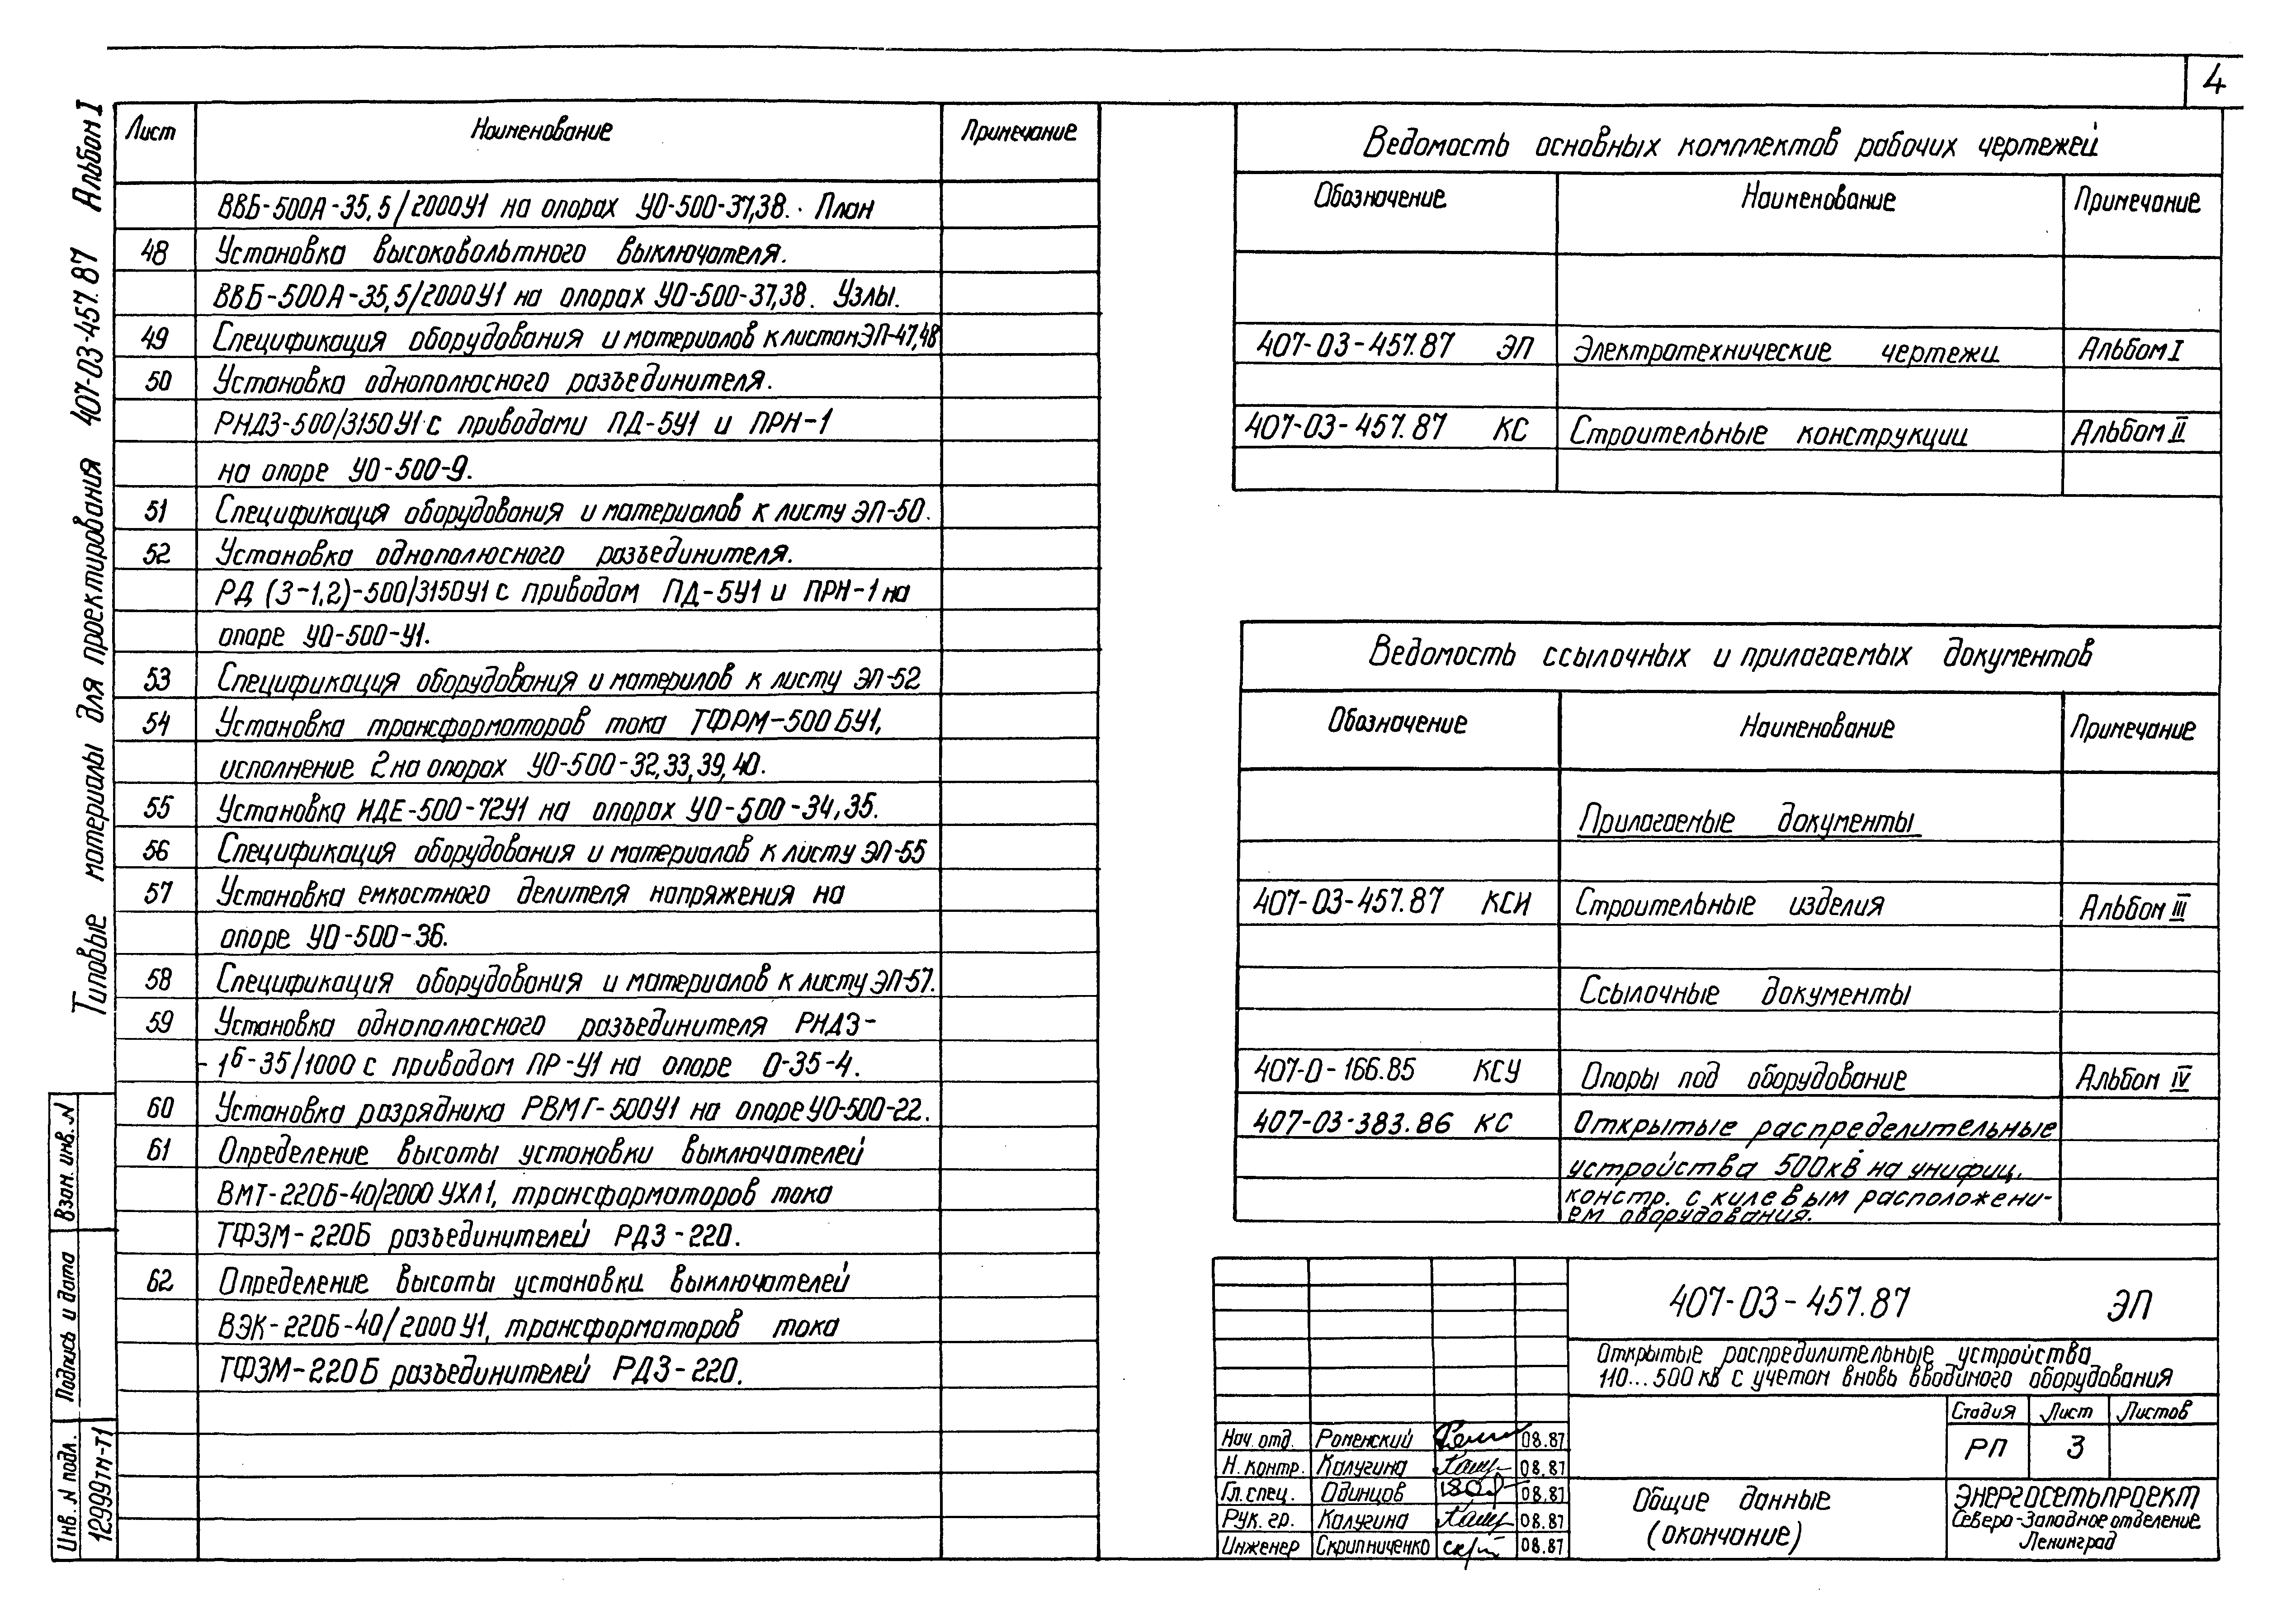 4
Типовые материалы для проектирования 407-03-457.87 Альбом I
Лист Наименование Примечание
ВВБ-500А-35,5/2000У1 на опорах УО-500-37,38. План
48 Установка высоковольтного выключателя.
ВВБ-500А-35,5/2000У1 на опорах УО-500-37,38. Узлы.
49 Спецификация оборудования и материалов к листам ЭП-47,48
50 Установка однополюсного разъединителя.
РНДЗ-500/3150У1 с приводами ПД-5У1 и ПРН-1
на опоре УО-500-9.
51 Спецификация оборудования и материалов к листу ЭП-50.
52 Установка однополюсного разъединителя.
РД (З-1,2)-500/3150У1 с приводом ПД-5У1 и ПРН-1 на
опоре УО-500-У1.
53 Спецификация оборудования и материлов к листу ЭП-52
54 Установка трансформаторов тока ТФРМ-500БУ1,
исполнение 2 на опорах УО-500-32,33,39,40.
55 Установка НДЕ-500-72У1 на опорах УО-500-34,35.
56 Спецификация оборудования и материалов к листу ЭП-55
57 Установка емкостного делителя напряжения на
опоре УО-500-36.
58 Спецификация оборудования и материалов к листу ЭП-57.
59 Установка однополюсного разъединителя РНДЗ-
-1б-35/1000 с приводом ПР-У1 на опоре О-35-4.
60 Установка разрядника РВМГ-500У1 на опоре УО-500-22.
61 Определение высоты установки выключателей
ВМТ-220Б-40/2000 УХЛ1, трансформаторов тока
ТФЗМ-220Б разъединителей РДЗ-220.
62 Определение высоты установки выключателей
ВЭК-220Б-40/2000У1, трансформаторов тока
ТФЗМ-220Б разъединителей РДЗ-220.
Взам. инв. N
Подпись и дата
Инв. N подл.
12999тм-т1
Ведомость основных комплектов рабочих чертежей
Обозначение Наименование Примечание
407-03-457.87 ЭП Электротехнические чертежи Альбом I
407-03-457.87 КС Строительные конструкции Альбом II
Ведомость ссылочных и прилагаемых документов
Обозначение Наименование Примечание
Прилагаемые документы
407-03-457.87 КСИ Строительные изделия Альбом III
Ссылочные документы
407-0-166.85 КСУ Опоры под оборудование Альбом IV
407-03-383.86 КС Открытые распределительные
устройства 500кВ на унифиц.
констр. с килевым расположени-
ем оборудования.
407-03-457.87 ЭП
Открытые распредилительные устройства
110...500 кВ с учетом вновь вводимого оборудования
Стадия Лист Листов
РП 3
Нач. отд. Роменский 08.87
Н. контр. Калугина 08.87
Гл. спец. Одинцов 08.87
Рук. гр. Калугина 08.87
Инженер Скрипниченко 08.87
Общие данные
(окончание)
ЭНЕРГОСЕТЬПРОЕКТ
Северо-Западное отделение
Ленинград